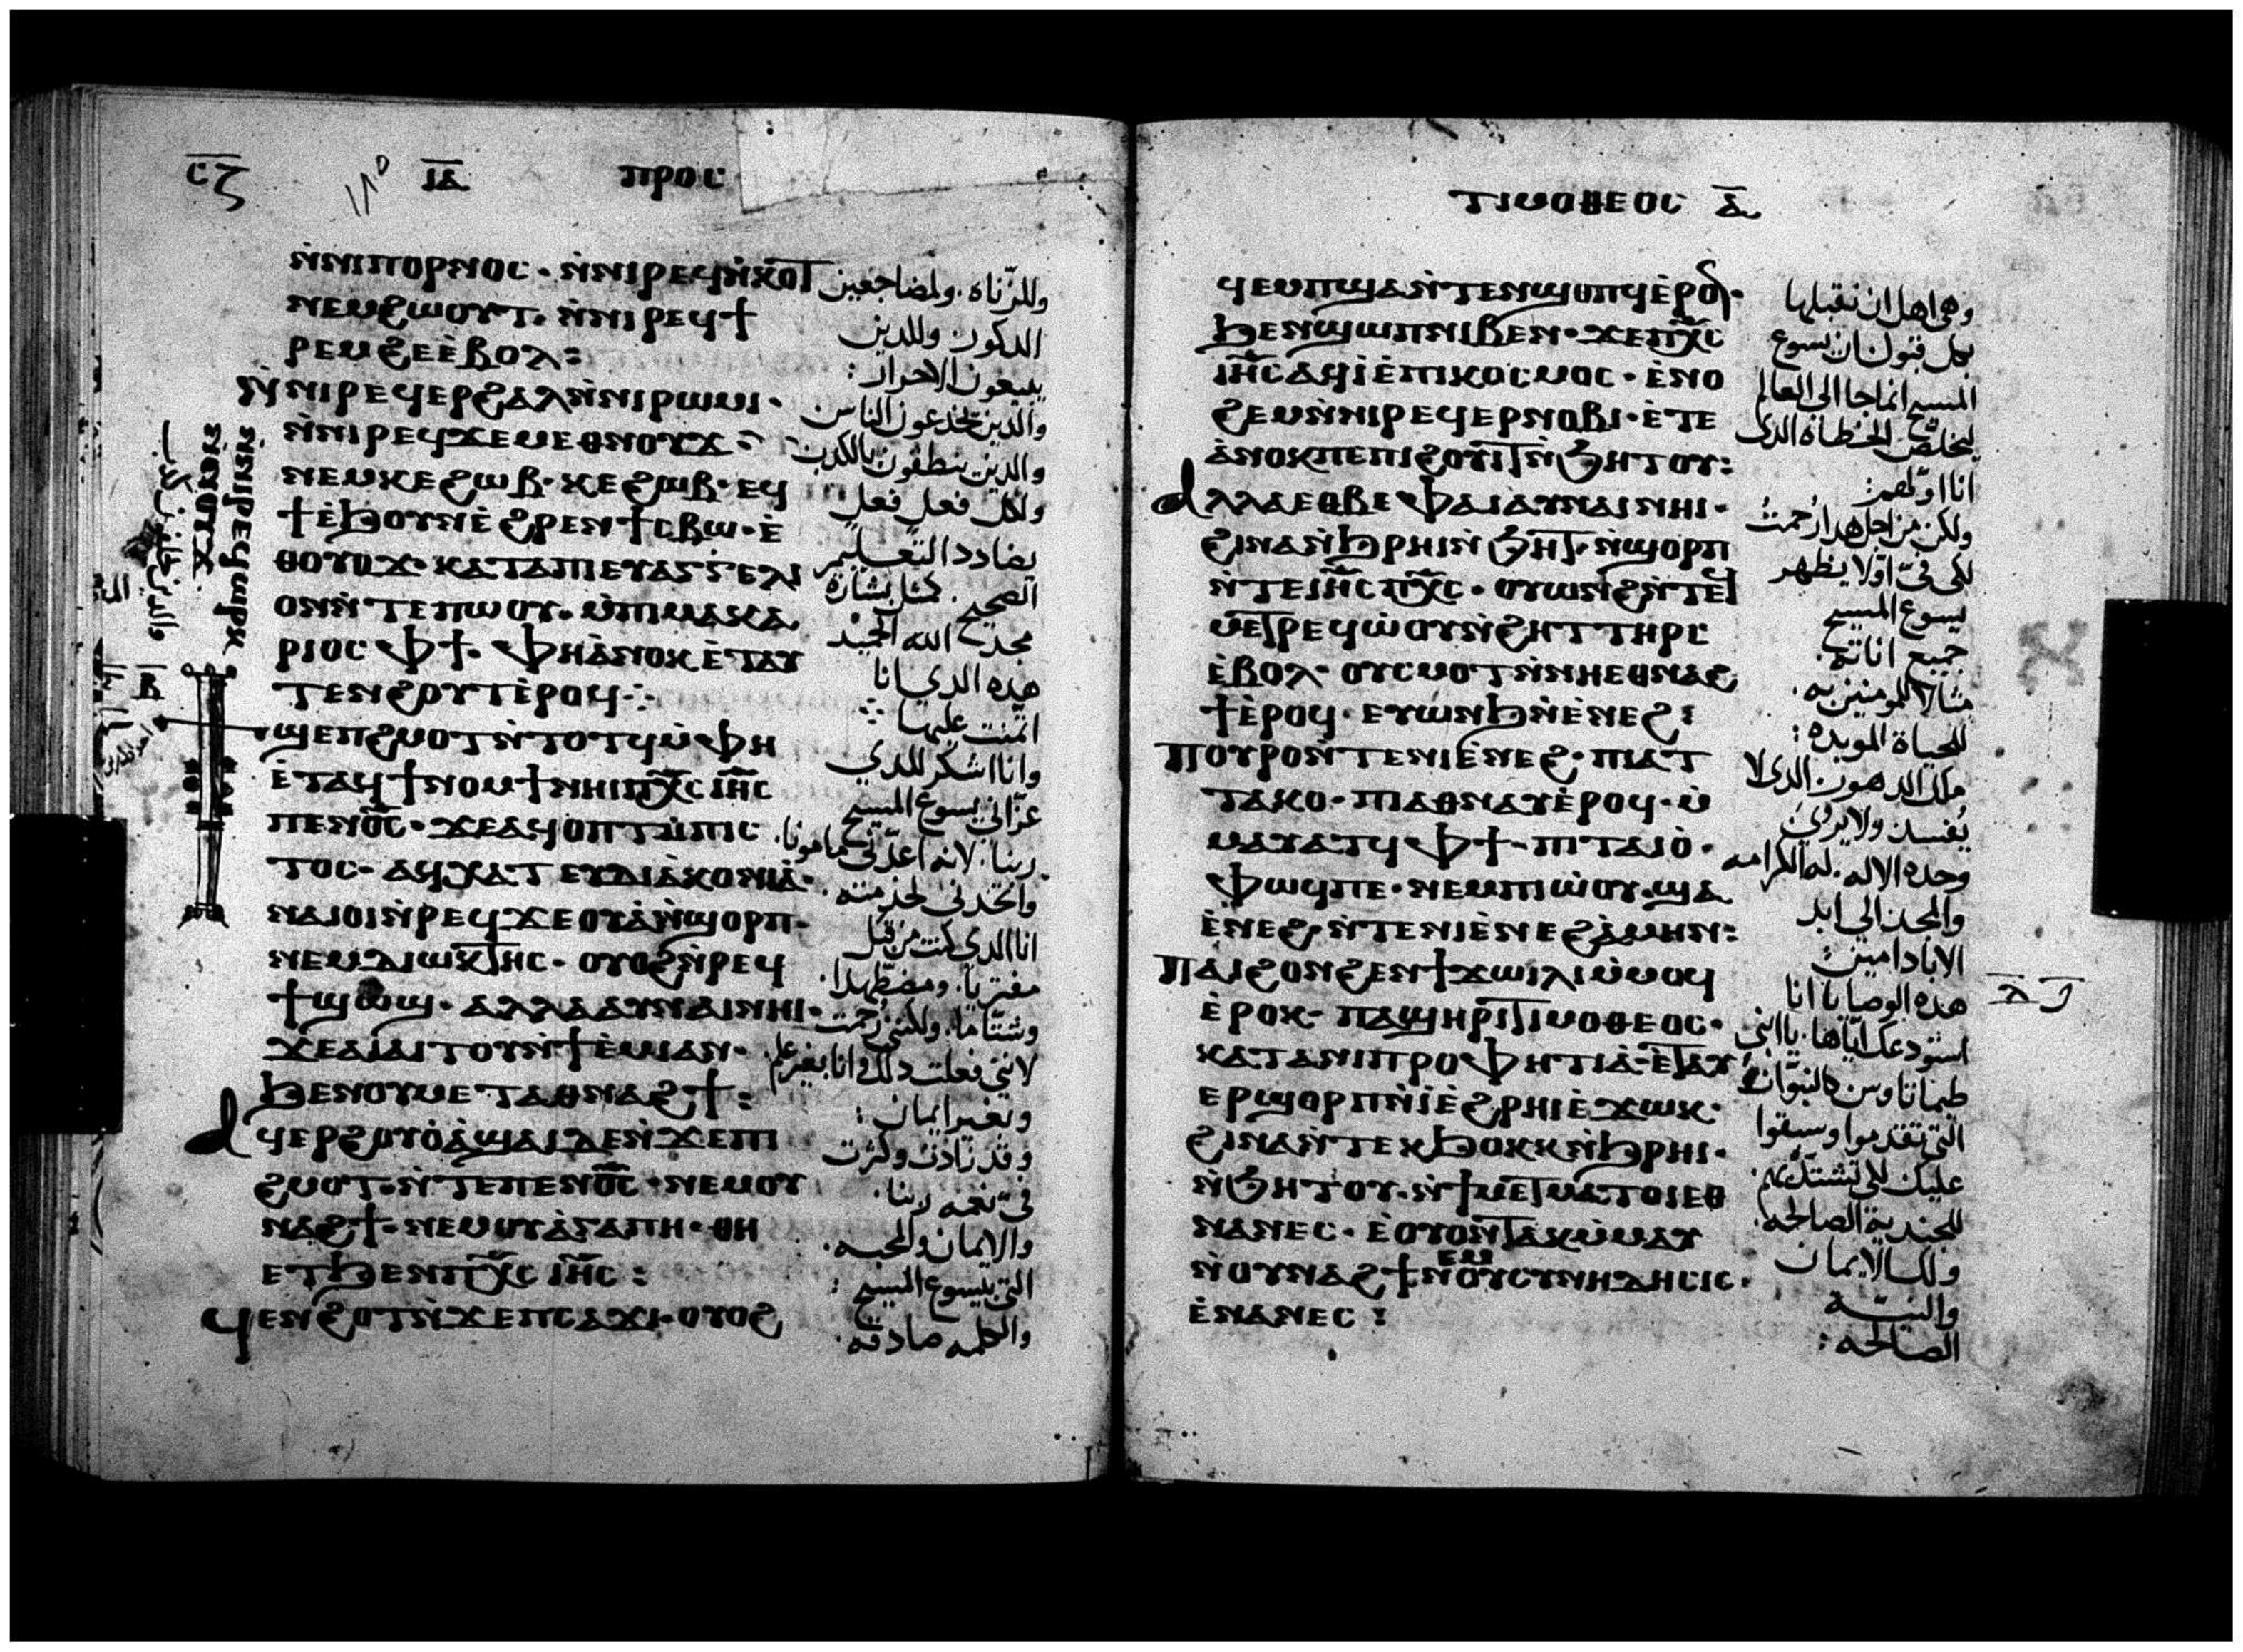 ⲥ̅ⲍ̅ ⲓ̅ⲁ̅ ⲡⲣⲟⲥ
ⲛ̀ⲛⲓⲡⲟⲣⲛⲟⲥ · ⲛ̀ⲛⲓⲣⲉϥⲛ̀ⲕⲟⲧ
ⲛⲉⲙϩⲱⲟⲩⲧ · ⲛ̀ⲛⲓⲣⲉϥϯ
ⲣⲉⲙϩⲉⲉ̀ⲃⲟⲗ :
ⲛ̀ⲛⲓⲣⲉϥⲉⲣϩⲁⲗⲛ̀ⲛⲓⲣⲱⲙⲓ ·
ⲛ̀ⲛⲓⲣⲉϥϫⲉⲙⲉⲑⲛⲟⲩϫ
ⲛⲉⲙⲕⲉϩⲱⲃ · ⲕⲉϩⲱⲃ · ⲉϥ
ϯⲉ̀ϧⲟⲩⲛⲉ̀ϩⲣⲉⲛϯⲥⲃⲱ · ⲉ̀
ⲑⲟⲩⲟϫ · ⲕⲁⲧⲁⲡⲓⲉⲩⲁⲅⲅⲉⲗⲓ
ⲟⲛⲛ̀ⲧⲉⲡⲱⲟⲩ · ⲙ̀ⲡⲓⲙⲁⲕⲁ
ⲣⲓⲟⲥ ⲫϯ · ⲫⲏⲁ̀ⲛⲟⲕ ⲉ̀ⲧⲁⲩ
ⲧⲉⲛϩⲟⲩⲧⲉ̀ⲣⲟϥ ⁘
ϣⲉⲡϩⲙⲟⲧⲛ̀ⲧⲟⲧϥⲙ̀ⲫⲏ
ⲉ̀ⲧⲁϥϯⲛⲟⲙϯⲛⲏⲓⲡⲭ̅ⲥ ⲓⲏ̅ⲥ
ⲡⲉⲛⲟ̅ⲥ̅ · ϫⲉⲁϥⲟⲡⲧⲙ̀ⲡⲓⲥ
ⲧⲟⲥ · ⲁϥⲭⲁⲧ ⲉⲩⲇⲓⲁ̀ⲕⲟⲛⲓⲁ̀ ·
ⲛⲁⲓⲟⲓⲛ̀ⲣⲉϥϫⲉⲟⲩⲁ̀ⲛ̀ϣⲟⲣⲡ ·
ⲛⲉⲙⲇⲓⲱⲕⲧⲏⲥ · ⲟⲩⲟϩⲛ̀ⲣⲉϥ
ϯϣⲱϣ · ⲁⲗⲗⲁⲁⲩⲛⲁⲓⲛⲏⲓ ·
ϫⲉⲁⲓⲁⲓⲧⲟⲩⲛ̀ϯⲉ̀ⲙⲓⲁⲛ ·
ϧⲉⲛⲟⲩⲙⲉⲧⲁⲑⲛⲁϩϯ :
ⲁϥⲉⲣϩⲟⲩⲟ̀ⲁ̀ϣⲁⲓⲇⲉⲛ̀ϫⲉⲡⲓ
ϩⲙⲟⲧ · ⲛ̀ⲧⲉⲡⲉⲛⲟ̅ⲥ̅ · ⲛⲉⲙⲟⲩ
ⲛⲁϩϯ · ⲛⲉⲙⲟⲩⲁ̀ⲅⲁⲡⲏ · ⲑⲏ
ⲉⲧϧⲉⲛⲡⲭ̅ⲥ ⲓⲏ̅ⲥ :
ϥⲉⲛϩⲟⲧⲛ̀ϫⲉⲡⲥⲁϫⲓ · ⲟⲩⲟϩ
وللزناه . ولمضاجعين
الدكون وللدين
يبيعون الاحرار :
والدين يخدعون الناس
والدين ينطقون بالكدب
ولكل فعل فعل
يضادد التعليم
الصحيح . كمثل بشارة
مجد الله المجيد
هده الدي انا
اتمنت عليها
وانا اشكر للدي
عزاني يسوع المسيح
ربنا . لانه اعدني مامونا .
واتخدني لخدمته .
انا الدي كنت من قبل
مفتريا . ومضطهدا .
وشتاما . ولكنني رحمت
لانني فعلت دلك وانا بغير علم
وبغير ايمان :
وقد زادت وكثرت
في نعمه ربنا .
والايمان والمحبه .
التي بيسوع المسيح :
والكلمه صادقه .
ⲛ̀ⲛⲓⲣⲉϥⲱⲣⲕ
ⲛ̀ⲛⲟⲩϫ
ⲧⲓⲙⲟⲑⲉⲟⲥ ⲁ̅
ϥⲉⲙⲡϣⲁⲛ̀ⲧⲉⲛϣⲟⲡϥⲉ̀ⲣⲟⲛ ·
ϧⲉⲛϣⲱⲡⲛⲓⲃⲉⲛ · ϫⲉⲡⲭ̅ⲥ
ⲓⲏ̅ⲥⲁϥⲓ̀ⲉ̀ⲡⲓⲕⲟⲥⲙⲟⲥ · ⲉ̀ⲛⲟ
ϩⲉⲙⲛ̀ⲛⲓⲣⲉϥⲉⲣⲛⲟⲃⲓ · ⲉ̀ⲧⲉ
ⲁ̀ⲛⲟⲕⲡⲉⲡⲓϩⲟⲩⲓⲧⲛ̀ϧⲏⲧⲟⲩ :
ⲁⲗⲗⲁⲉⲑⲃⲉ ⲫⲁⲓⲁⲩⲛⲁⲓⲛⲏⲓ ·
ϩⲓⲛⲁⲛ̀ϧⲣⲏⲓⲛ̀ϧⲏⲧ · ⲛ̀ϣⲟⲣⲡ
ⲛ̀ⲧⲉⲓⲏ̅ⲥ ⲡⲭ̅ⲥ · ⲟⲩⲱⲛϩⲛ̀ⲧⲉϥ
ⲙⲉⲧⲣⲉϥⲱ̀ⲟⲩⲛ̀ϩⲏⲧ ⲧⲏⲣⲥ
ⲉ̀ⲃⲟⲗ · ⲟⲩⲥⲙⲟⲧⲛ̀ⲛⲏⲉⲑⲛⲁϩ
ϯⲉ̀ⲣⲟϥ · ⲉⲩⲱⲛϧⲛ̀ⲉ̀ⲛⲉϩ :
ⲡⲟⲩⲣⲟⲛ̀ⲧⲉⲛⲓⲉ̀ⲛⲉϩ · ⲡⲓⲁⲧ
ⲧⲁⲕⲟ · ⲡⲓⲁⲑⲛⲁⲩⲉ̀ⲣⲟϥ · ⲙ̀
ⲙⲁⲩⲁⲧϥ ⲫϯ · ⲡⲓⲧⲁⲓⲟ̀ ·
ⲫⲱϥⲡⲉ · ⲛⲉⲙⲡⲓⲱ̀ⲟⲩ · ϣⲁ
ⲉ̀ⲛⲉϩ · ⲛ̀ⲧⲉⲛⲓⲉ̀ⲛⲉϩⲁ̀ⲙⲏⲛ :
ⲡⲁⲓϩⲟⲛϩⲉⲛϯⲭⲱⲓⲗⲓⲙ̀ⲙⲟϥ
ⲉ̀ⲣⲟⲕ · ⲡⲁϣⲏⲣⲓⲧⲓⲙⲟⲑⲉⲟⲥ ·
ⲕⲁⲧⲁⲛⲓⲡⲣⲟⲫⲏⲧⲓⲁ̀ · ⲉⲧⲁⲩ
ⲉⲣϣⲟⲣⲡⲛ̀ⲓ̀ⲉ̀ϩⲣⲏⲓⲉ̀ϫⲱⲕ ·
ϩⲓⲛⲁⲛ̀ⲧⲉⲕϧⲟⲕⲕⲛ̀ϧⲣⲏⲓ ·
ⲛ̀ϧⲏⲧⲟⲩ · ⲛ̀ϯⲙⲉⲧⲙⲁⲧⲟⲓⲉⲑ
ⲛⲁⲛⲉⲥ · ⲉ̀ⲟⲩⲟⲛ̀ⲧⲁⲕⲙ̀ⲙⲁⲩ
ⲛ̀ⲟⲩⲛⲁϩϯⲛⲉⲙⲟⲩⲥⲩⲛⲏⲇⲏⲥⲓⲥ ·
ⲉ̀ⲛⲁⲛⲉⲥ :
وهي اهل ان نقبلها
بكل قبول ان يسوع
المسيح انما جا الى العالم
ليخلص الخطاه الدى
انا اولهم :
ولكن من اجل هدا رحمت
لكي في اولا يظهر
يسوع المسيح
جميع اناته .
مثالا للمومنين به .
للحياة الموبده :
ملك الدهور الدى لا
يفسد ولا يرى
وحده الاله . له الكرامه
والمجد الى ابد
الاباد امين :
هده الوصايا انا
استودعك اياها . يا ابني
طيماتاوس كالنبوات
التي تقدموا وسبقوا
عليك لكي تشتد بهم .
للجندية الصالحه .
ولك الايمان
والنية
الصالحه :